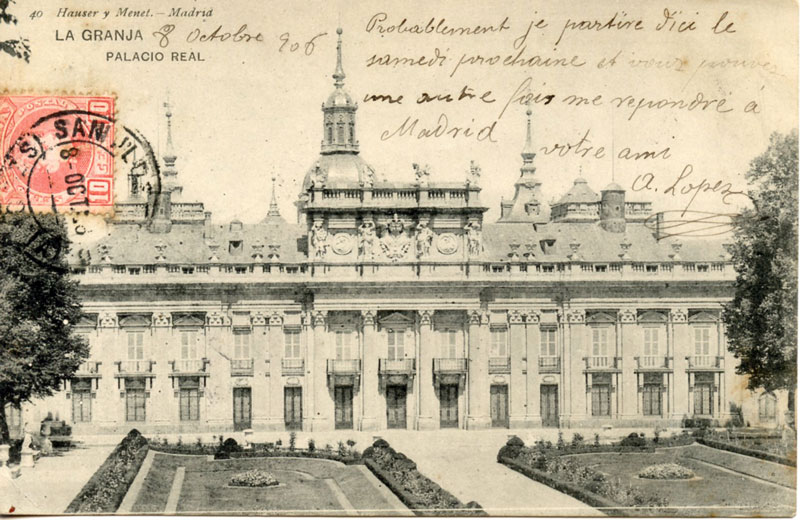 40 Hauser y Menet. - Madrid
LA GRANJA 8 Octobre 906
PALACIO REAL
Probablement je partire d'ici le
samedi prochaine et vous pouvez
une autre fois me repondré á
Madrid
votre ami
A. Lopez
SAN ILDE
8 OCT
10
10